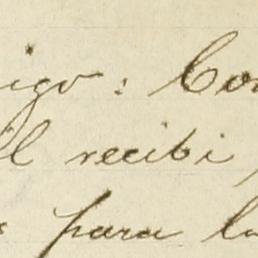 igo: Con
il recibi
para la